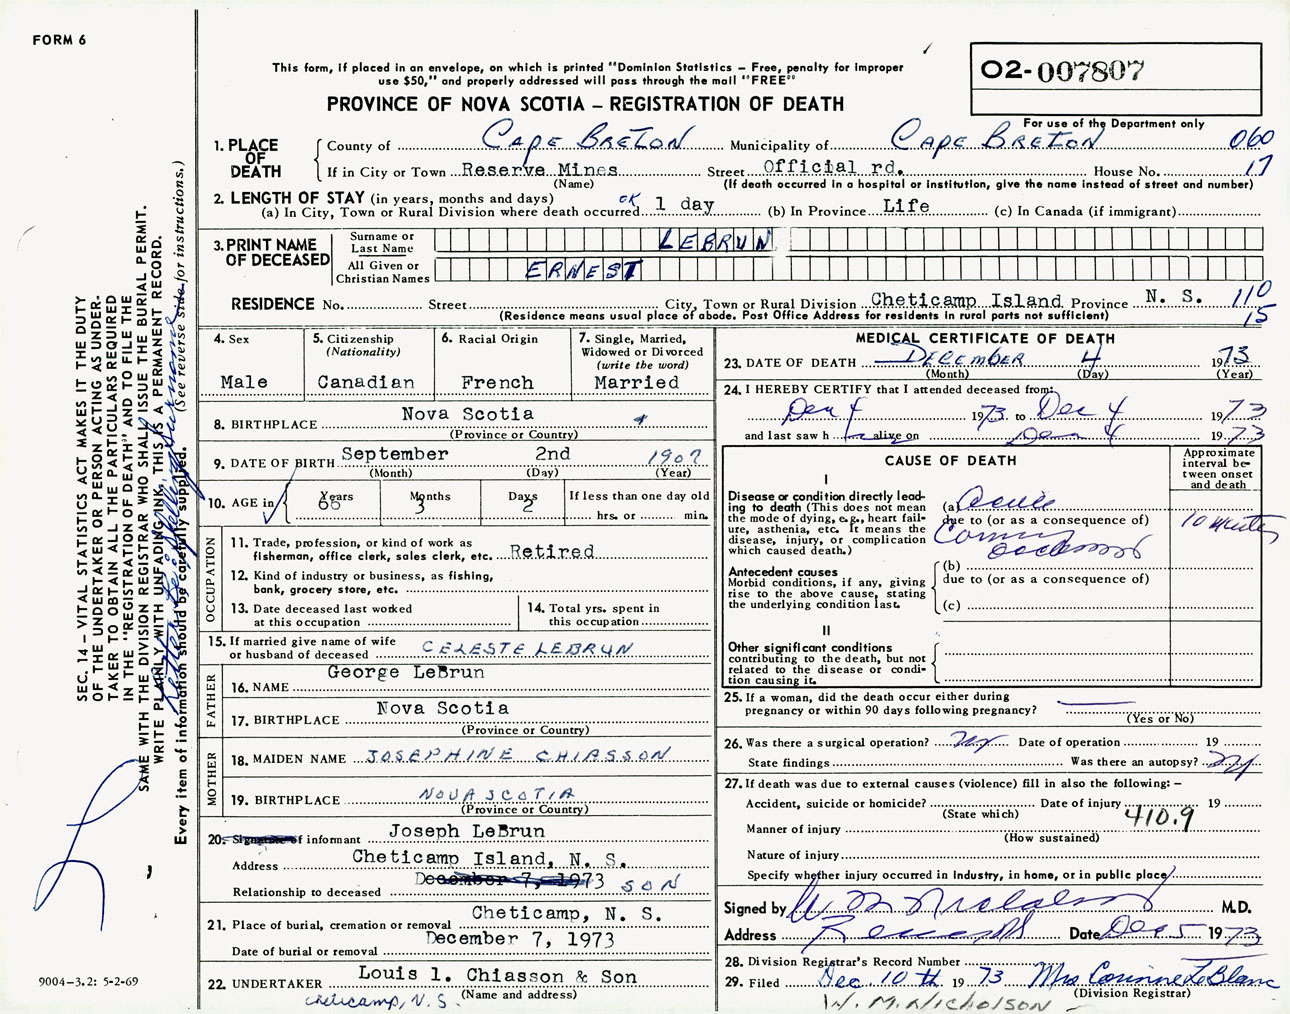 FORM 6
This form, if placed in an envelope, on which is printed "Dominion Statistics – Free, penalty for improper
use $50," and properly addressed will pass through the mail "FREE"
PROVINCE OF NOVA SCOTIA – REGISTRATION OF DEATH
O2-007807
For use of the Department only
060
17
1. PLACE OF DEATH
County of CAPE BRETON Municipality of CAPE BRETON
If in City or Town Reserve Mines Street Official rd. House No.
(Name) (If death occurred in a hospital or institution, give the name instead of street and number)
2. LENGTH OF STAY (in years, months and days)
(a) In City, Town or Rural Division where death occurred OK 1 day (b) In Province Life (c) In Canada (if immigrant)
3. PRINT NAME OF DECEASED
Surname or Last Name LEBRUN
All Given or Christian Names ERNEST
RESIDENCE No. Street City, Town or Rural Division Cheticamp Island Province N. S. 110
(Residence means usual place of abode. Post Office Address for residents in rural parts not sufficient) 15
4. Sex
Male
5. Citizenship
(Nationality)
Canadian
6. Racial Origin
French
7. Single, Married,
Widowed or Divorced
(write the word)
Married
8. BIRTHPLACE Nova Scotia
(Province or Country)
9. DATE OF BIRTH September 2nd 1907
(Month) (Day) (Year)
10. AGE in Years Months Days If less than one day old
66 3 2 hrs. or min.
OCCUPATION
11. Trade, profession, or kind of work as
fisherman, office clerk, sales clerk, etc. Retired
12. Kind of industry or business, as fishing,
bank, grocery store, etc.
13. Date deceased last worked
at this occupation
14. Total yrs. spent in
this occupation
15. If married give name of wife
or husband of deceased CELESTE LEBRUN
FATHER
16. NAME George LeBrun
17. BIRTHPLACE Nova Scotia
(Province or Country)
MOTHER
18. MAIDEN NAME JOSEPHINE CHIASSON
19. BIRTHPLACE NOVA SCOTIA
(Province or Country)
20. Signature of informant Joseph LeBrun
Address Cheticamp Island, N. S.
December 7, 1973
Relationship to deceased SON
21. Place of burial, cremation or removal Cheticamp, N. S.
Date of burial or removal December 7, 1973
22. UNDERTAKER Louis l. Chiasson & Son
(Name and address)
Cheticamp, N. S.
MEDICAL CERTIFICATE OF DEATH
23. DATE OF DEATH DECEMBER 4 1973
(Month) (Day) (Year)
24. I HEREBY CERTIFY that I attended deceased from:
Dec 4 1973 to Dec 4 1973
and last saw h alive on Dec 4 1973
CAUSE OF DEATH
Approximate
interval be-
tween onset
and death
I
Disease or condition directly lead-
ing to death (This does not mean
the mode of dying, e.g., heart fail-
ure, asthenia, etc. It means the
disease, injury, or complication
which caused death.)
(a) Acute
due to (or as a consequence of)
Coronary
occlusion
10 minutes
Antecedent causes
Morbid conditions, if any, giving
rise to the above cause, stating
the underlying condition last.
(b)
due to (or as a consequence of)
(c)
II
Other significant conditions
contributing to the death, but not
related to the disease or condi-
tion causing it.
25. If a woman, did the death occur either during
pregnancy or within 90 days following pregnancy?
(Yes or No)
26. Was there a surgical operation? Date of operation 19
State findings Was there an autopsy?
27. If death was due to external causes (violence) fill in also the following: –
Accident, suicide or homicide? Date of injury 19
(State which)
410.9
Manner of injury
(How sustained)
Nature of injury
Specify whether injury occurred in industry, in home, or in public place
Signed by W M Nicholson M.D.
Address Date Dec 5 1973
28. Division Registrar's Record Number
29. Filed Dec 10th 1973 Mrs Corinne LeBlanc
(Division Registrar)
W. M. Nicholson
SEC. 14 – VITAL STATISTICS ACT MAKES IT THE DUTY
OF THE UNDERTAKER OR PERSON ACTING AS UNDER-
TAKER TO OBTAIN ALL THE PARTICULARS REQUIRED
IN THE "REGISTRATION OF DEATH" AND TO FILE THE
SAME WITH THE DIVISION REGISTRAR WHO SHALL ISSUE THE BURIAL PERMIT.
WRITE PLAINLY WITH UNFADING INK, THIS IS A PERMANENT RECORD.
Every item of information should be carefully supplied. (See reverse side for instructions.)
9004–3.2: 5-2-69